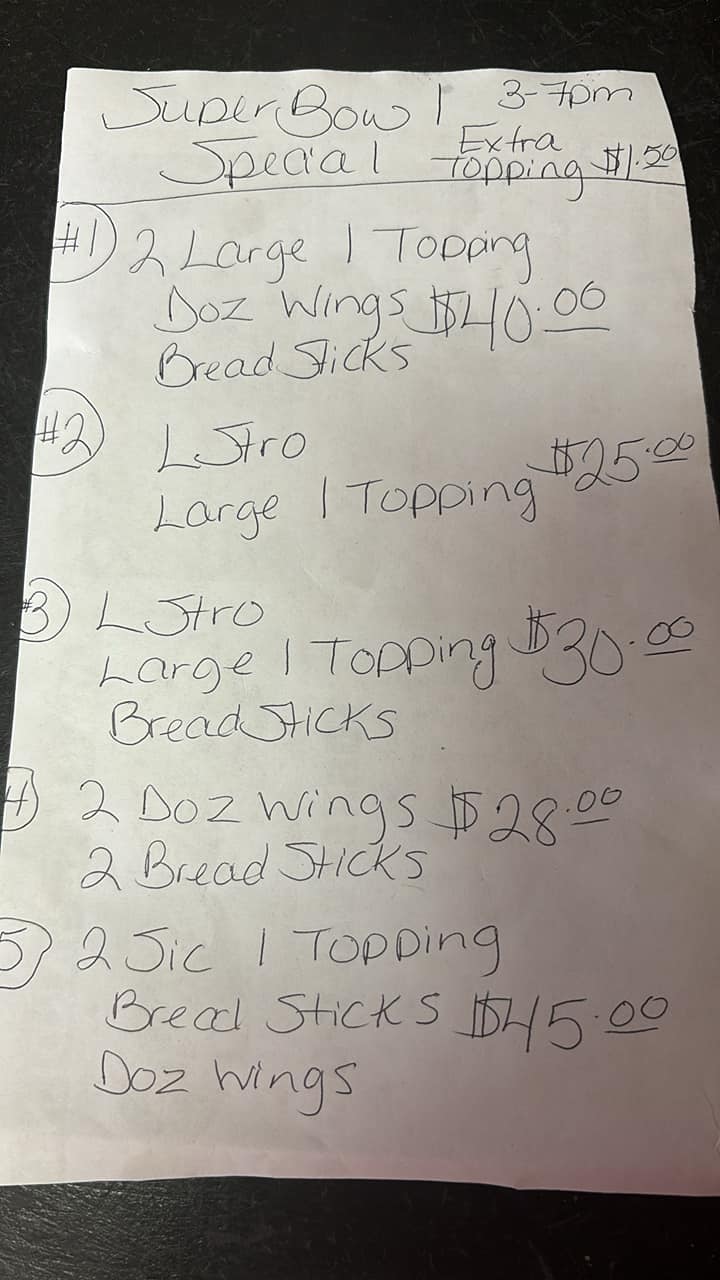 Super Bowl 3-7pm
Special Extra Topping $1.50
#1 2 Large 1 Topping
Doz Wings $40.00
Bread Sticks
#2 L Stro
Large 1 Topping $25.00
#3 L Stro
Large 1 Topping $30.00
Bread Sticks
4 2 Doz Wings $28.00
2 Bread Sticks
5 2 Sic 1 Topping
Bread Sticks $45.00
Doz Wings